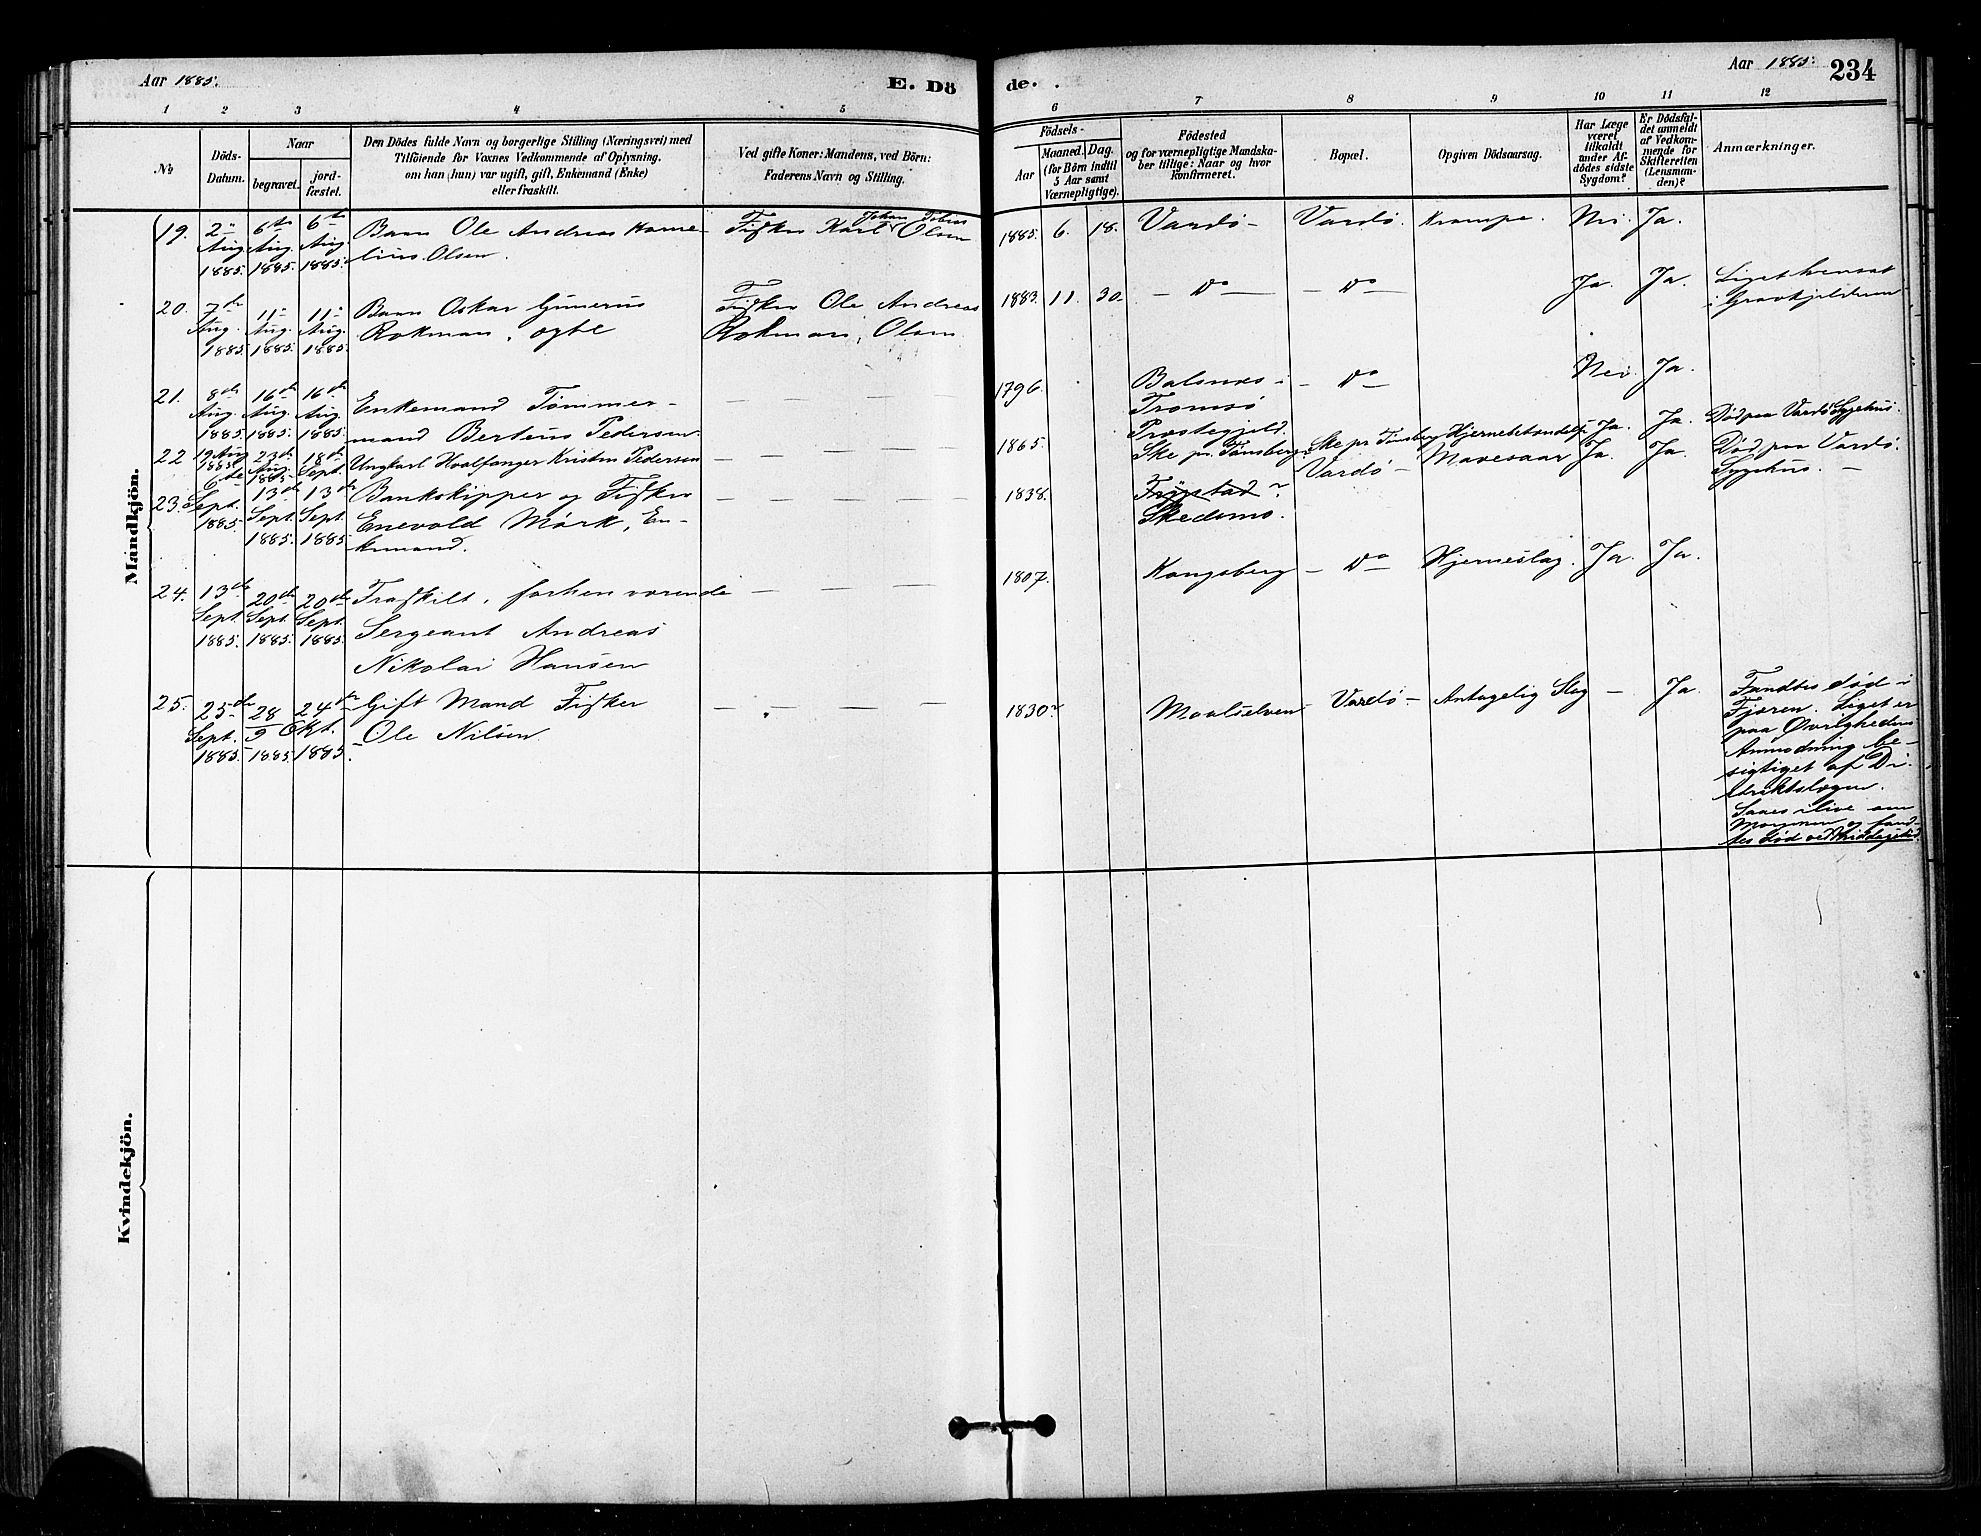 Aar 1885.
E. Dö
de.
Aar 1885.
234
1 2 3 4 5 6 7 8 9 10 11 12
No
Döds-
Datum.
Naar
begravet.
jord-
fæstet.
Den Dödes fulde Navn og borgerlige Stilling (Næringsvei) med
Tilföiende for Voxnes Vedkommende af Oplysning,
om han (hun) var ugift, gift, Enkemand (Enke)
eller fraskilt.
Ved gifte Koner: Mandens, ved Börn:
Faderens Navn og Stilling.
Födsels-
Aar
Maaned. Dag.
(for Börn indtil
5 Aar samt
Værnepligtige).
Födested
og for værnepligtige Mandska-
ber tillige: Naar og hvor
konfirmeret.
Bopæl.
Opgiven Dödsaarsag.
Har Læge
været
tilkaldt
under Af-
dödes sidste
Sygdom?
Er Dödsfal-
det anmeldt
af Vedkom-
mende for
Skifteretten
(Lensman-
den)?
Anmærkninger.
Mandkjön.
19. 2
Aug.
1885.
6te
Aug.
1885.
6te
Aug.
1885.
Barn Ole Andreas Korne-
lius Olsen.
Johan Tobias
Fisker Karl Olsen
1885. 6. 18. Vardö – Vardö. Krampe. Nei. Ja.
20. 7de
Aug.
1885.
11
Aug.
1885.
11
Aug.
1885.
Barn Oskar Gunerus
Rokman, ogte
Fisker Ole Andreas
Rokman, Olsen.
1883. 11. 30. – Do – – Do – Ja. Ja. Liget hensat
i Gravkjelderen
21. 8de
Aug.
1885.
16de
Aug.
1885.
16de
Aug.
1885.
Enkemand Tömmer-
mand Berteus Pedersen.
– – – –
1796. Balsnes i
Tromsö
Præstegjeld.
– Do – Nei. Ja.
22 19 Aug
1885.
23de
Aug.
1885.
18de
Sept.
Ungkarl Hvalfanger Kristen Pedersen
– – – –
1865. Ske pr. Tönsberg. Ske pr. Tönsberg Hjernebetændelse Ja. Ja. Död paa Vardö Sygehus.
23. 6te
Sept.
1885
13de
Sept.
1885.
13de
Sept.
1885
Bankskipper og Fisker
Enevold Mörk, En-
kemand.
– – – –
1838. Frÿstad ?
Skedsmo.
Vardö – Mavesaar Ja. Ja. Död paa Vardö
Sygehus. –
24. 13de
Sept.
1885.
20de
Sept.
1885.
20de
Sept.
1885.
Fraskilt, forhenværende
Sergeant Andreas
Nikolai Hansen
– – –
1807. Kongsberg – Do – Hjerneslag. Ja. Ja.
25. 25de
Sept.
1885.
28
9
1885.
24de
Okt.
1885.
Gift Mand Fisker
Ole Nilsen.
– – – –
1830 Maalselven Vardö – Antagelig Slag – Ja. Fandtes död i
Fjæren. Liget er
paa Övrighedens
Anmodning be-
sigtiget af Di-
striktslægen.
Saaes ilive om
Morgenen og fand-
tes död ved Middagstid.
Kvindekjön.